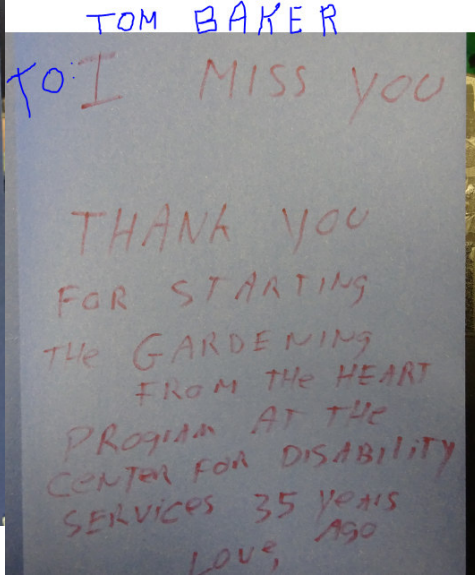 TOM BAKER
TO: I MISS YOU
THANK YOU
FOR STARTING
THE GARDENING
FROM THE HEART
PROGRAM AT THE
CENTER FOR DISABILITY
SERVICES 35 YEARS
AGO
LOVE,